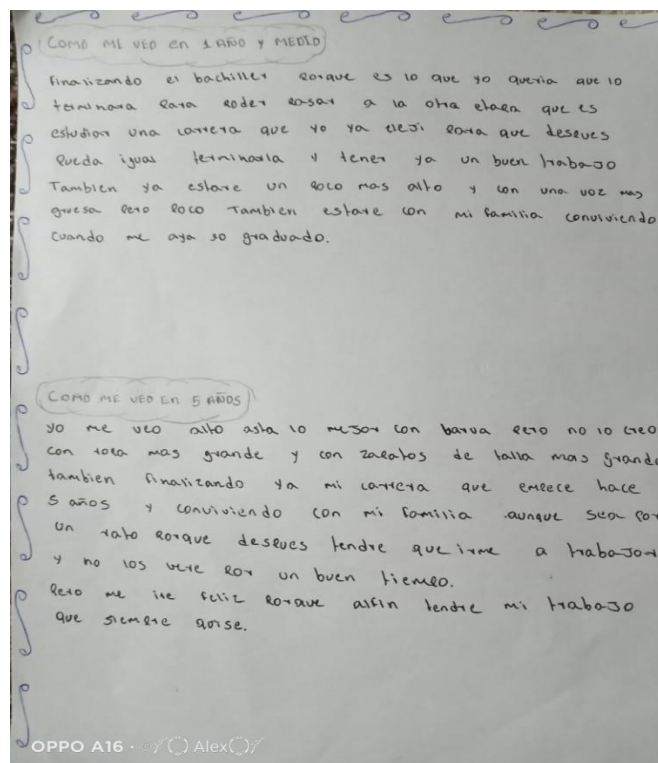 COMO ME VEO en 1 AÑO y MEDIO
finalizando el bachiller porque es lo que yo queria que lo
terminara para poder pasar a la otra etapa que es
estudiar una carrera que yo ya eleji para que despues
pueda igual terminarla y tener ya un buen trabajo
Tambien ya estare un poco mas alto y con una voz mas
gruesa pero poco Tambien estare con mi familia conviviendo
cuando me aya so graduado.
COMO ME VEO En 5 AÑOS
yo me veo alto asta lo mejor con barva pero no lo creo
con ropa mas grande y con zapatos de talla mas grande
tambien finalizando ya mi carrera que empece hace
5 años y conviviendo con mi familia aunque sea por
un rato porque despues tendre que irme a trabajar
y no los vere por un buen tiempo.
Pero me ire feliz porque alfin tendre mi trabajo
que siempre qoise.
OPPO A16 · Alex